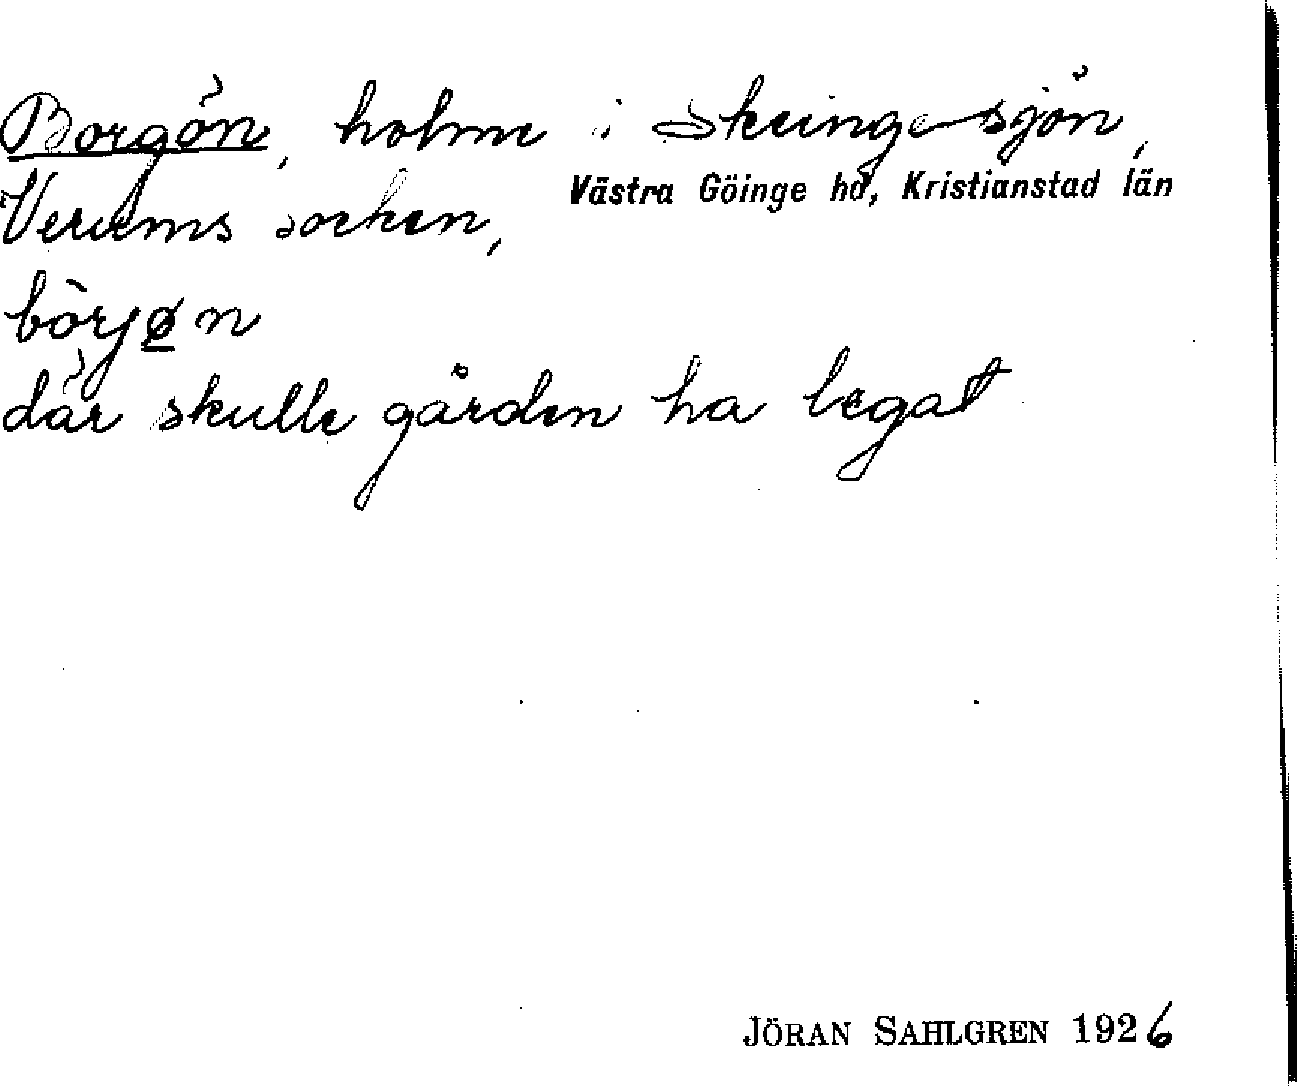 Borgön, holme i Skeingesjön,
Västra Göinge hd, Kristianstad län
Verums socken,
bòrjø̲n
där skulle gården ha legat
JÖRAN SAHLGREN 1926